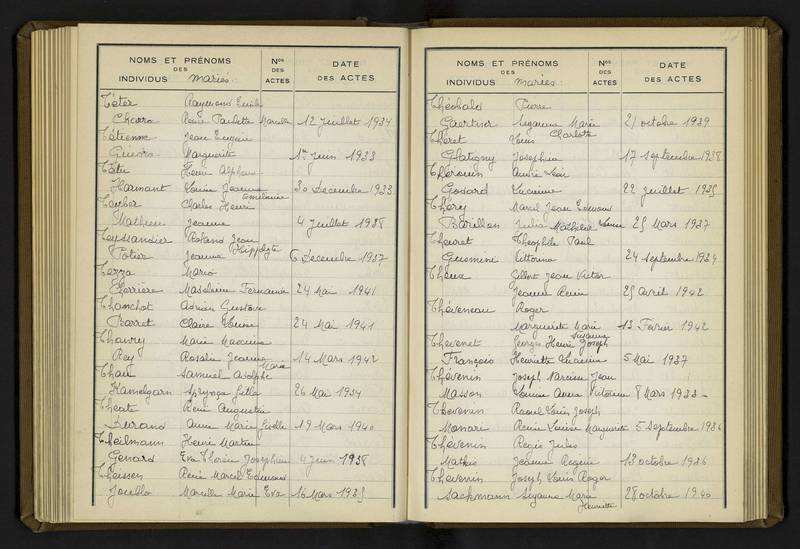 NOMS ET PRÉNOMS
DES
INDIVIDUS mariés.
Nos
DES
ACTES
DATE
DES ACTES
Téter Raymond Emile
Renée Paulette Marcelle 12 juillet 1934
Tétienne Jean Eugène
Marguerite 1er juin 1933
Tétu Henri Alphonse
Harmant Louise Jeanne 30 Décembre 1933
Emilienne
Charles Henri
Mathieu Jeanne 4 juillet 1938
Teyssandier Roland Jean
Hippolyte
Potier Jeanne 6 Décembre 1937
Tezza Mario
Ferrière Madeleine Fernande 24 Mai 1941
Thanchot Adrien Gustave
Barret Claire Louise 24 Mai 1941
Thauvry Marie Maxime
Roy Rosalie Jeanne 14 Mars 1942
Marie
Thau Samuel Adolphe
Kamelgarn 26 Mai 1934
René Augustin
Durand Anne Marie Gisèle 19 Mars 1940
Theilmann Henri Martin
Genard Eva Thérèse Joséphine 4 juin 1938
Theissen René Marcel Edmond
Marcelle Marie Eva 16 Mars 1935
NOMS ET PRÉNOMS
DES
INDIVIDUS mariés.
Nos
DES
ACTES
DATE
DES ACTES
Théobald Pierre
Gaertner Suzanne Marie 21 octobre 1939
Charlotte
Théret Louis
Glatigny Joséphine 17 septembre 1938
Thérouin André Léon
Godard Lucienne 22 juillet 1935
Théry Marcel Jean Edmond
Barillon Julia Mathilde Louise 25 Mars 1937
Theuret Théophile Paul
Vittorina 24 septembre 1934
Theux Gilbert Jean Victor
Jeanne Renée 25 avril 1942
Théveneau Roger
Marguerite Marie 13 Février 1942
Suzanne
Thevenet Georges Henri Joseph
François Henriette Lucienne 5 Mai 1937
Thévenin Joseph Narcisse Jean
Masson Louise Anna Victorine 8 Mars 1933
Thévenin Raoul Louis Joseph
Monari Renée Louise Marguerite 5 Septembre 1936
Thévenin Regis Jules
Mathis Jeanne Regine 18 octobre 1936
Thévenin Joseph Louis Roger
Sackmann Suzanne Marie 28 octobre 1940
Henriette